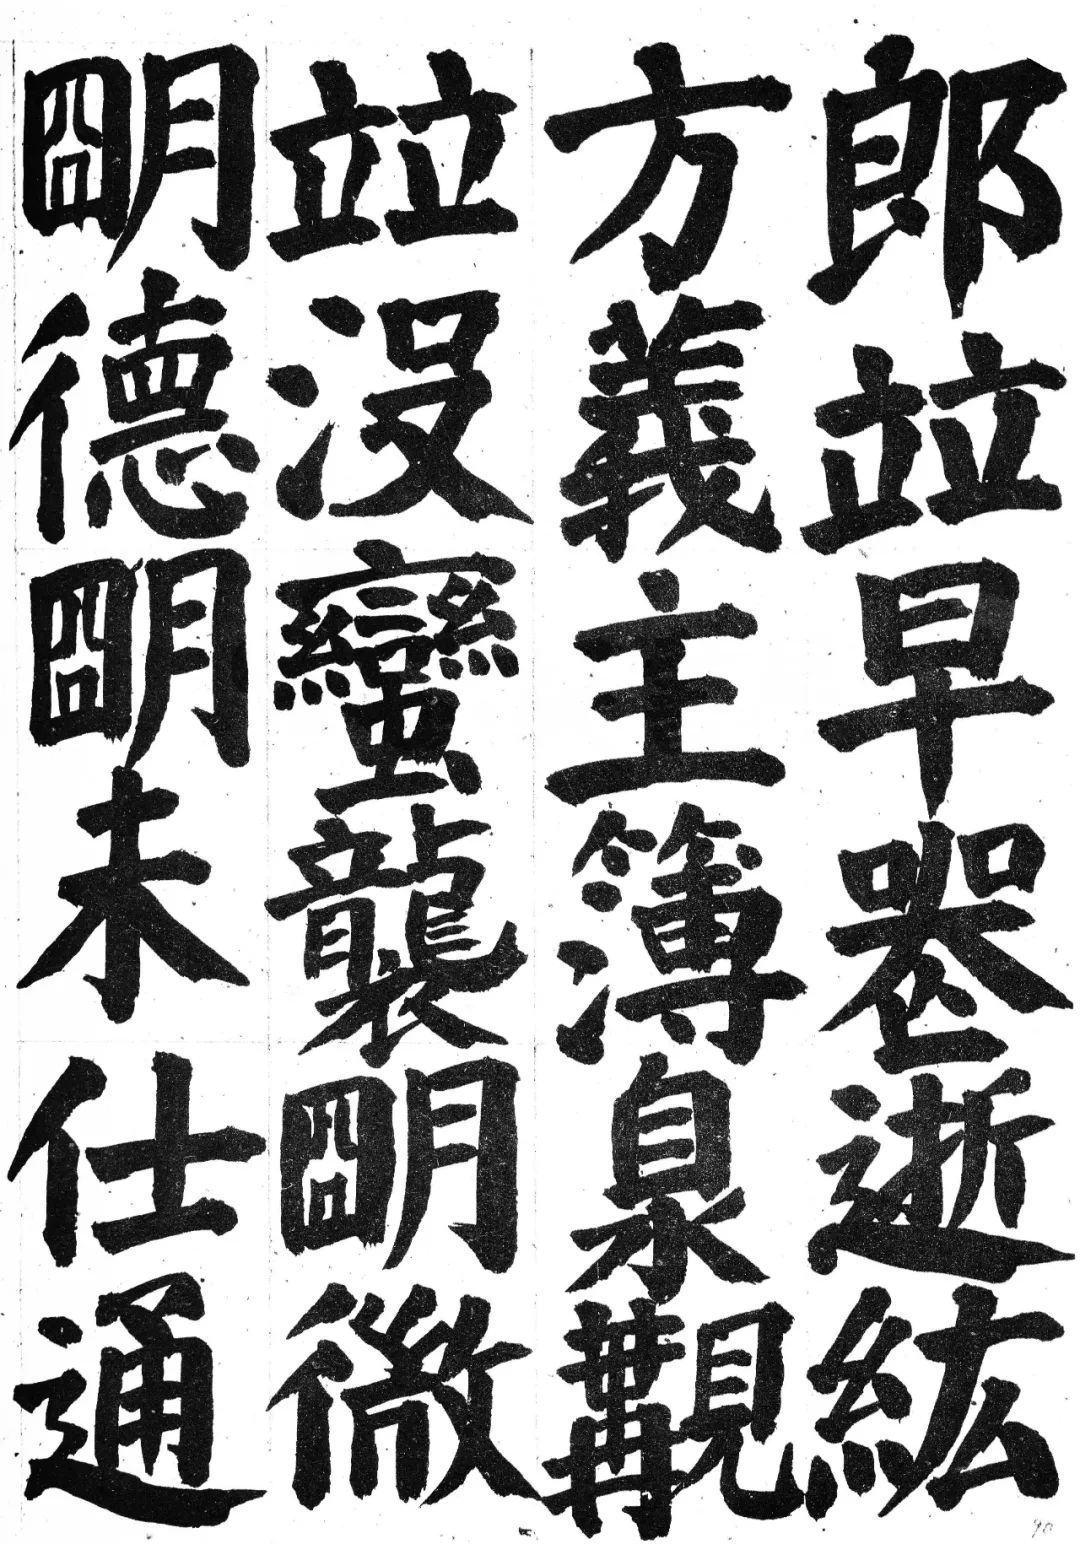 郎竝早喪逝紘
方義主簿泉覯
竝沒蠻襲明微
明德明未仕通